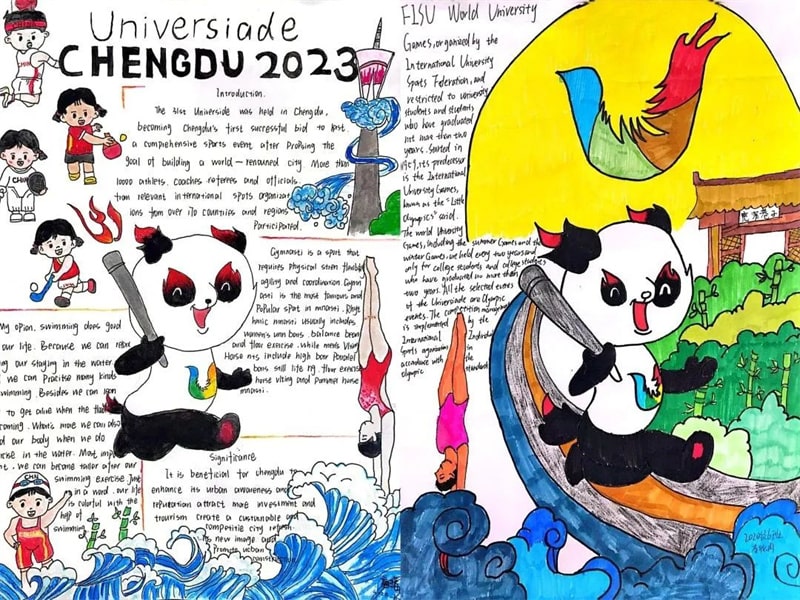 Universiade
CHENGDU 2023
Introduction.
The 31st Universide was held in Chengdu,
becoming Chengdu's first successful bid to host
a comprehensive sports event after proposing the
goal of building a world-renouned city More than
10000 athlets. Coaches referees and officials
from relevant international spots organizat
ions from over 170 countries and regions
Participated.
Gymnasei is a sport that
requires physical stren
agiling and coordination Gym
nasei is the most famous and
Popular spot in mnasei. Rhyt
hmic mnasei usually includes
women's unn bars. balance beam
and floor exercise. while men's
Horse nts include high bar Parallel
bars still life rg. floor exercise
horse vlting and Pummer horse
mnasei.
My opion. swimming does good
our life. Because we can relax
ng our staying in the water.
we can Practise many kinds
swimming. Besides we can
to get alive when the
coming. What's more we can also
d our body when we do
rise in the water. Most imp
nt. we can become tailer after our
swimming exercise.
in a word. our life
is colorful with the
help of
swimming
Significance
It is beneficial for chengdu t
enhance its urban awareness and
reputation attract more investment and
tourism create a sustainable and
competitie city refresh
its new image and
Promote urban
CHN
FISU World University
Games, organized by the
International University
Spots Federation, and
restricted to university
students and students
who have graduated
not more than two
years. Sarted in
1959, its predecessor
is the International
University Games,
known as the "Little
Olympics" said.
The world University
Games, including the summer Games and the
winter Games. are held every two years and
only for college students and college students
who have graduated no more than
two years. All the selected events
of the Universiade are Olympic
events. The competition
is implemented by the
International
Spots organization in
accordance with the
olympic standard.